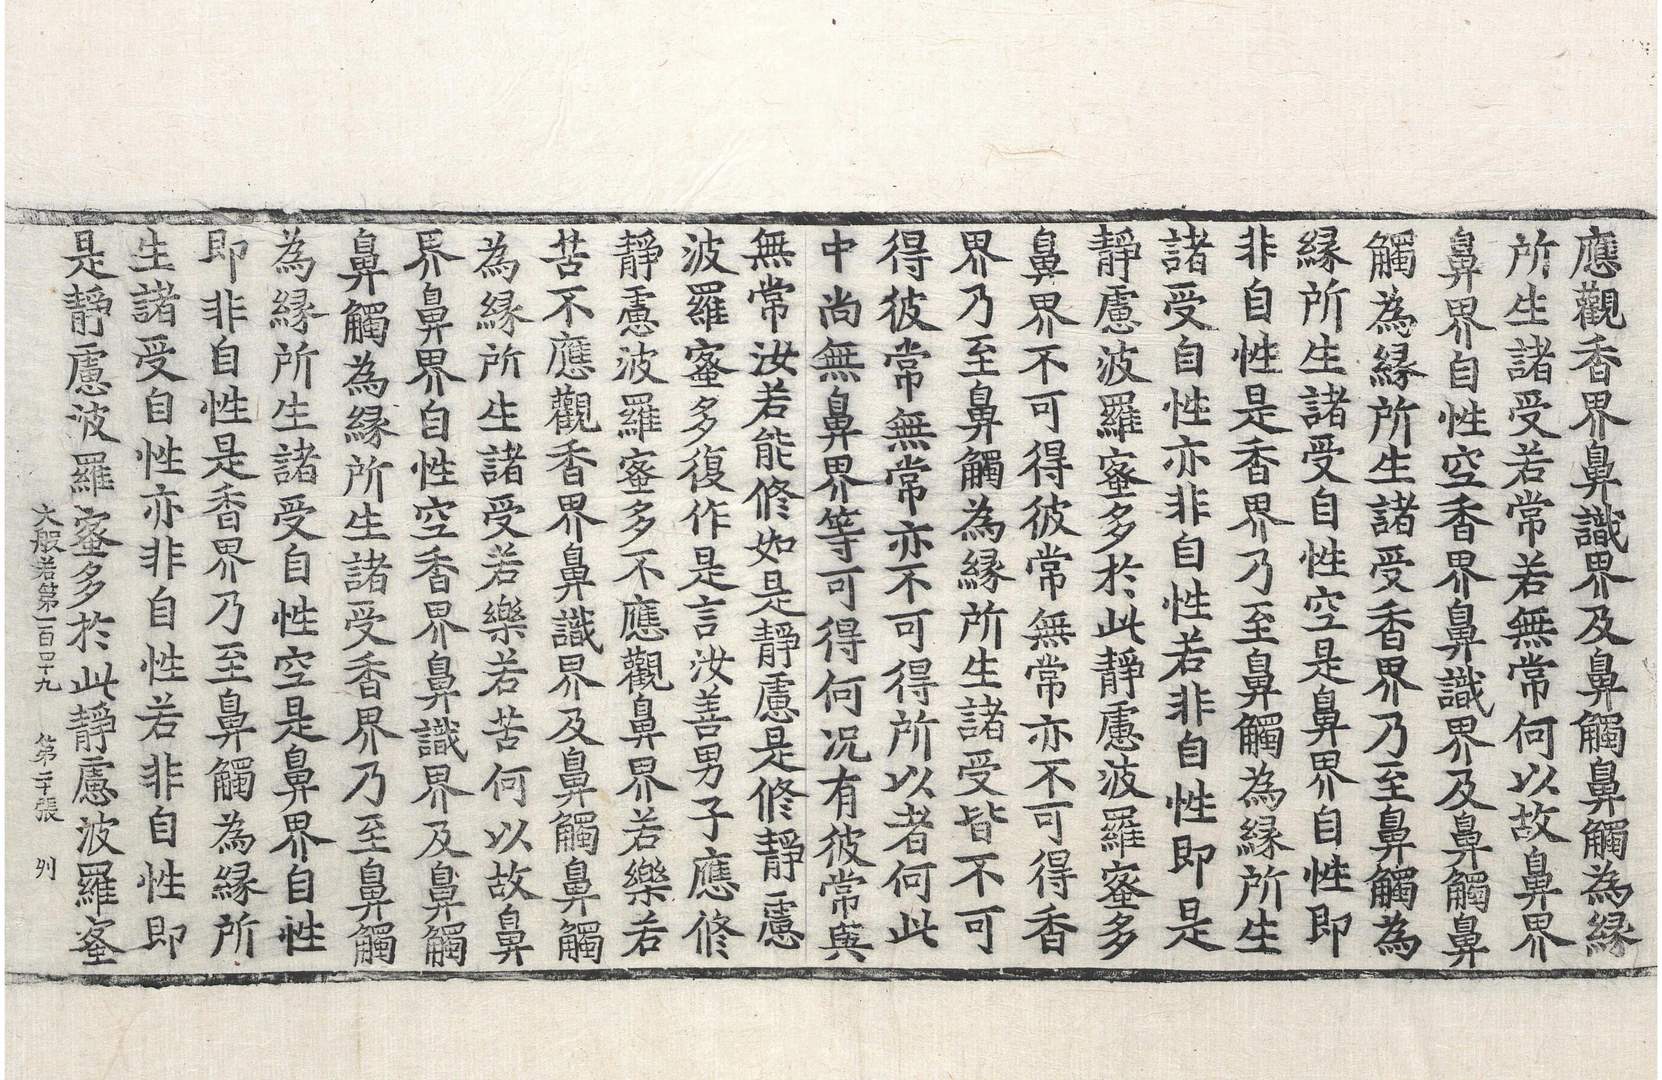 應觀香界鼻識界及鼻觸鼻觸為緣
所生諸受若常若無常何以故鼻界
鼻界自性空香界鼻識界及鼻觸鼻
觸為緣所生諸受香界乃至鼻觸為
緣所生諸受自性空是鼻界自性即
非自性是香界乃至鼻觸為緣所生
諸受自性亦非自性若非自性即是
靜慮波羅蜜多於此靜慮波羅蜜多
鼻界不可得彼常無常亦不可得香
界乃至鼻觸為緣所生諸受皆不可
得彼常無常亦不可得所以者何此
中尚無鼻界等可得何況有彼常與
無常汝若能修如是靜慮是修靜慮
波羅蜜多復作是言汝善男子應修
靜慮波羅蜜多不應觀鼻界若樂若
苦不應觀香界鼻識界及鼻觸鼻觸
為緣所生諸受若樂若苦何以故鼻
界鼻界自性空香界鼻識界及鼻觸
鼻觸為緣所生諸受香界乃至鼻觸
為緣所生諸受自性空是鼻界自性
即非自性是香界乃至鼻觸為緣所
生諸受自性亦非自性若非自性即
是靜慮波羅蜜多於此靜慮波羅蜜
大般若第一百四十九 第二十張 列